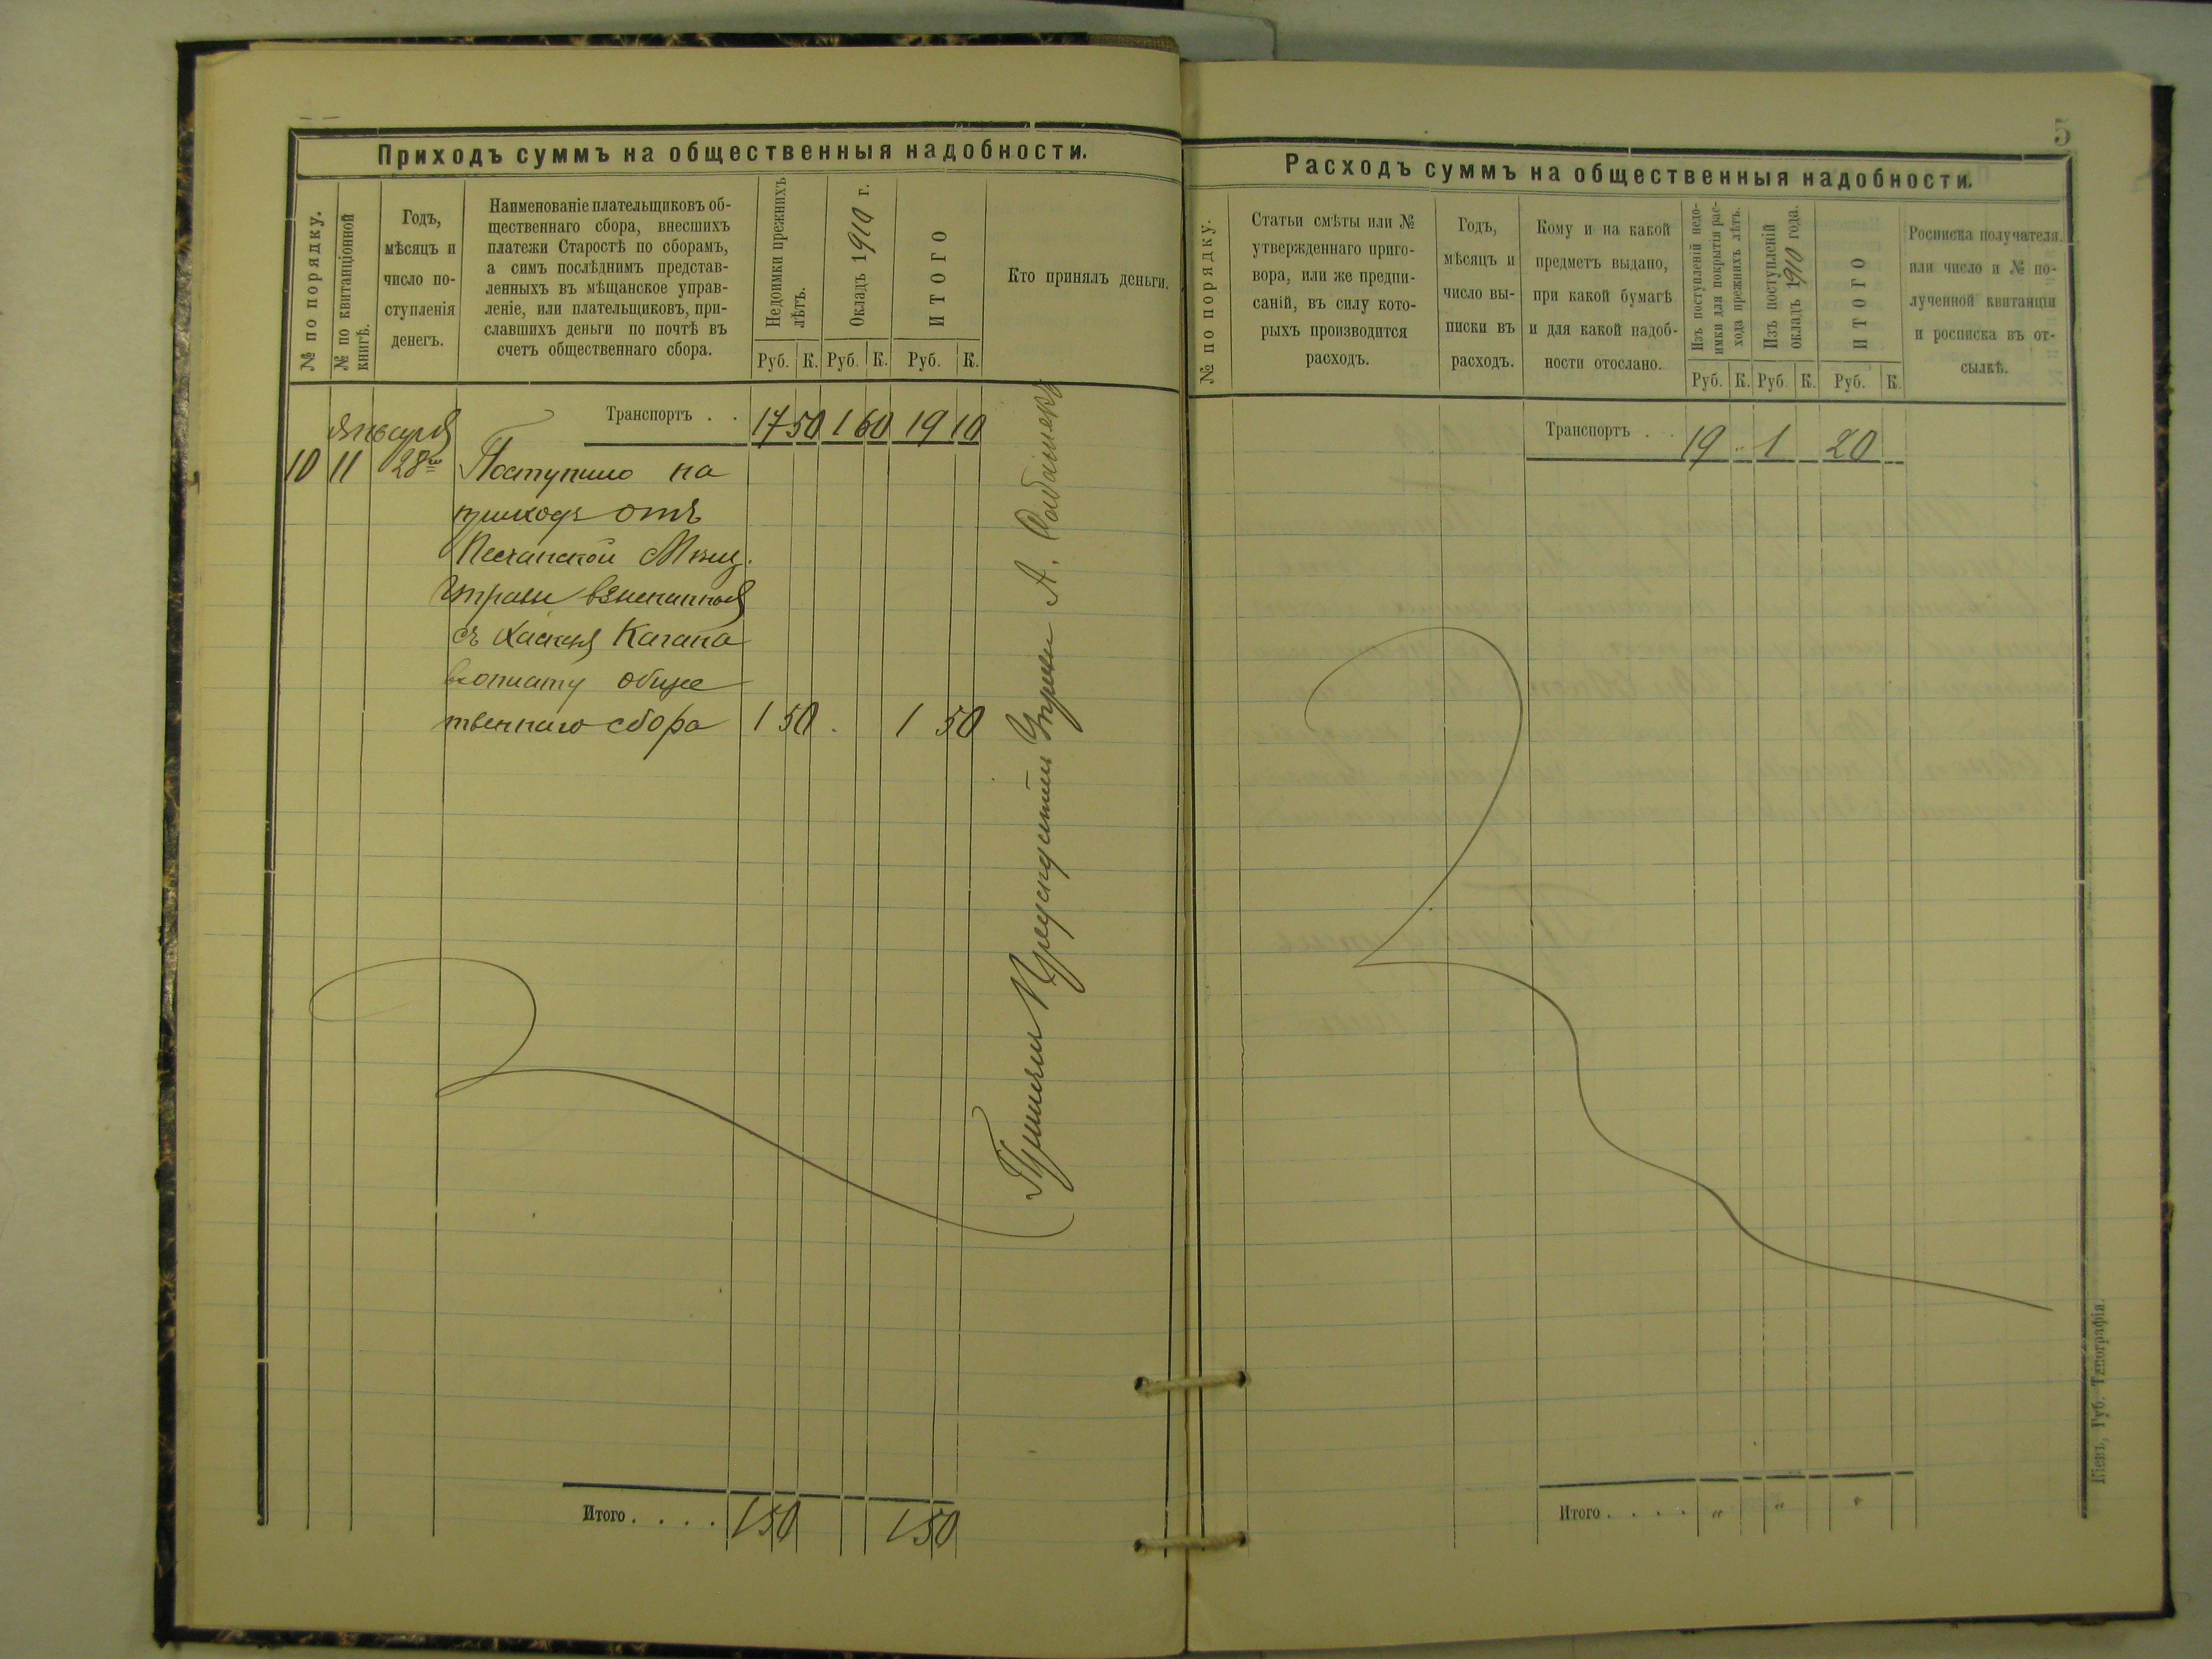 Приходъ суммъ на общественныя надобности.
№ по порядку.
№ по квитанціонной
книгѣ.
Годъ,
мѣсяцъ и
число по-
ступленія
денегъ.
Наименованіе плательщиковъ об-
щественнаго сбора, внесшихъ
платежи Старостѣ по сборамъ,
а симъ послѣднимъ представ-
ленныхъ въ мѣщанское управ-
леніе, или плательщиковъ, при-
славшихъ деньги по почтѣ въ
счетъ общественнаго сбора.
Недоимки прежнихъ
лѣтъ.
Окладъ 1910 г.
ИТОГО
Руб. К. Руб. К. Руб. К.
Кто принялъ деньги.
Транспортъ . . 17 50 1 60 19 10
Января
10 11 28го Поступило на
приходъ отъ
Песчанской Мѣщ.
Управы взысканные
съ Хаскеля Кагана
въ оплату обще
твеннаго сбора 1 50 . 1 50
Принялъ Предсѣдатель Управы А.
Итого . . . . 1 50 1 50
5
Расходъ суммъ на общественныя надобности.
№ по порядку.
Статьи смѣты или №
утвержденнаго приго-
вора, или же предпи-
саній, въ силу кото-
рыхъ производится
расходъ.
Годъ,
мѣсяцъ и
число вы-
писки въ
расходъ.
Кому и на какой
предметъ выдано,
при какой бумагѣ
и для какой надоб-
ности отослано.
Изъ поступленій недо-
имки для покрытія рас-
хода прежнихъ лѣтъ.
Изъ поступленій
окладъ 1910 года.
ИТОГО
Руб. К. Руб. К. Руб. К.
Росписка получателя.
или число и № по-
лученной квитанціи
и росписка въ от-
сылкѣ.
Транспортъ . . 19 " 1 — 20 —
Итого . . . . " " "
Кіевъ, Губ. Типографія.